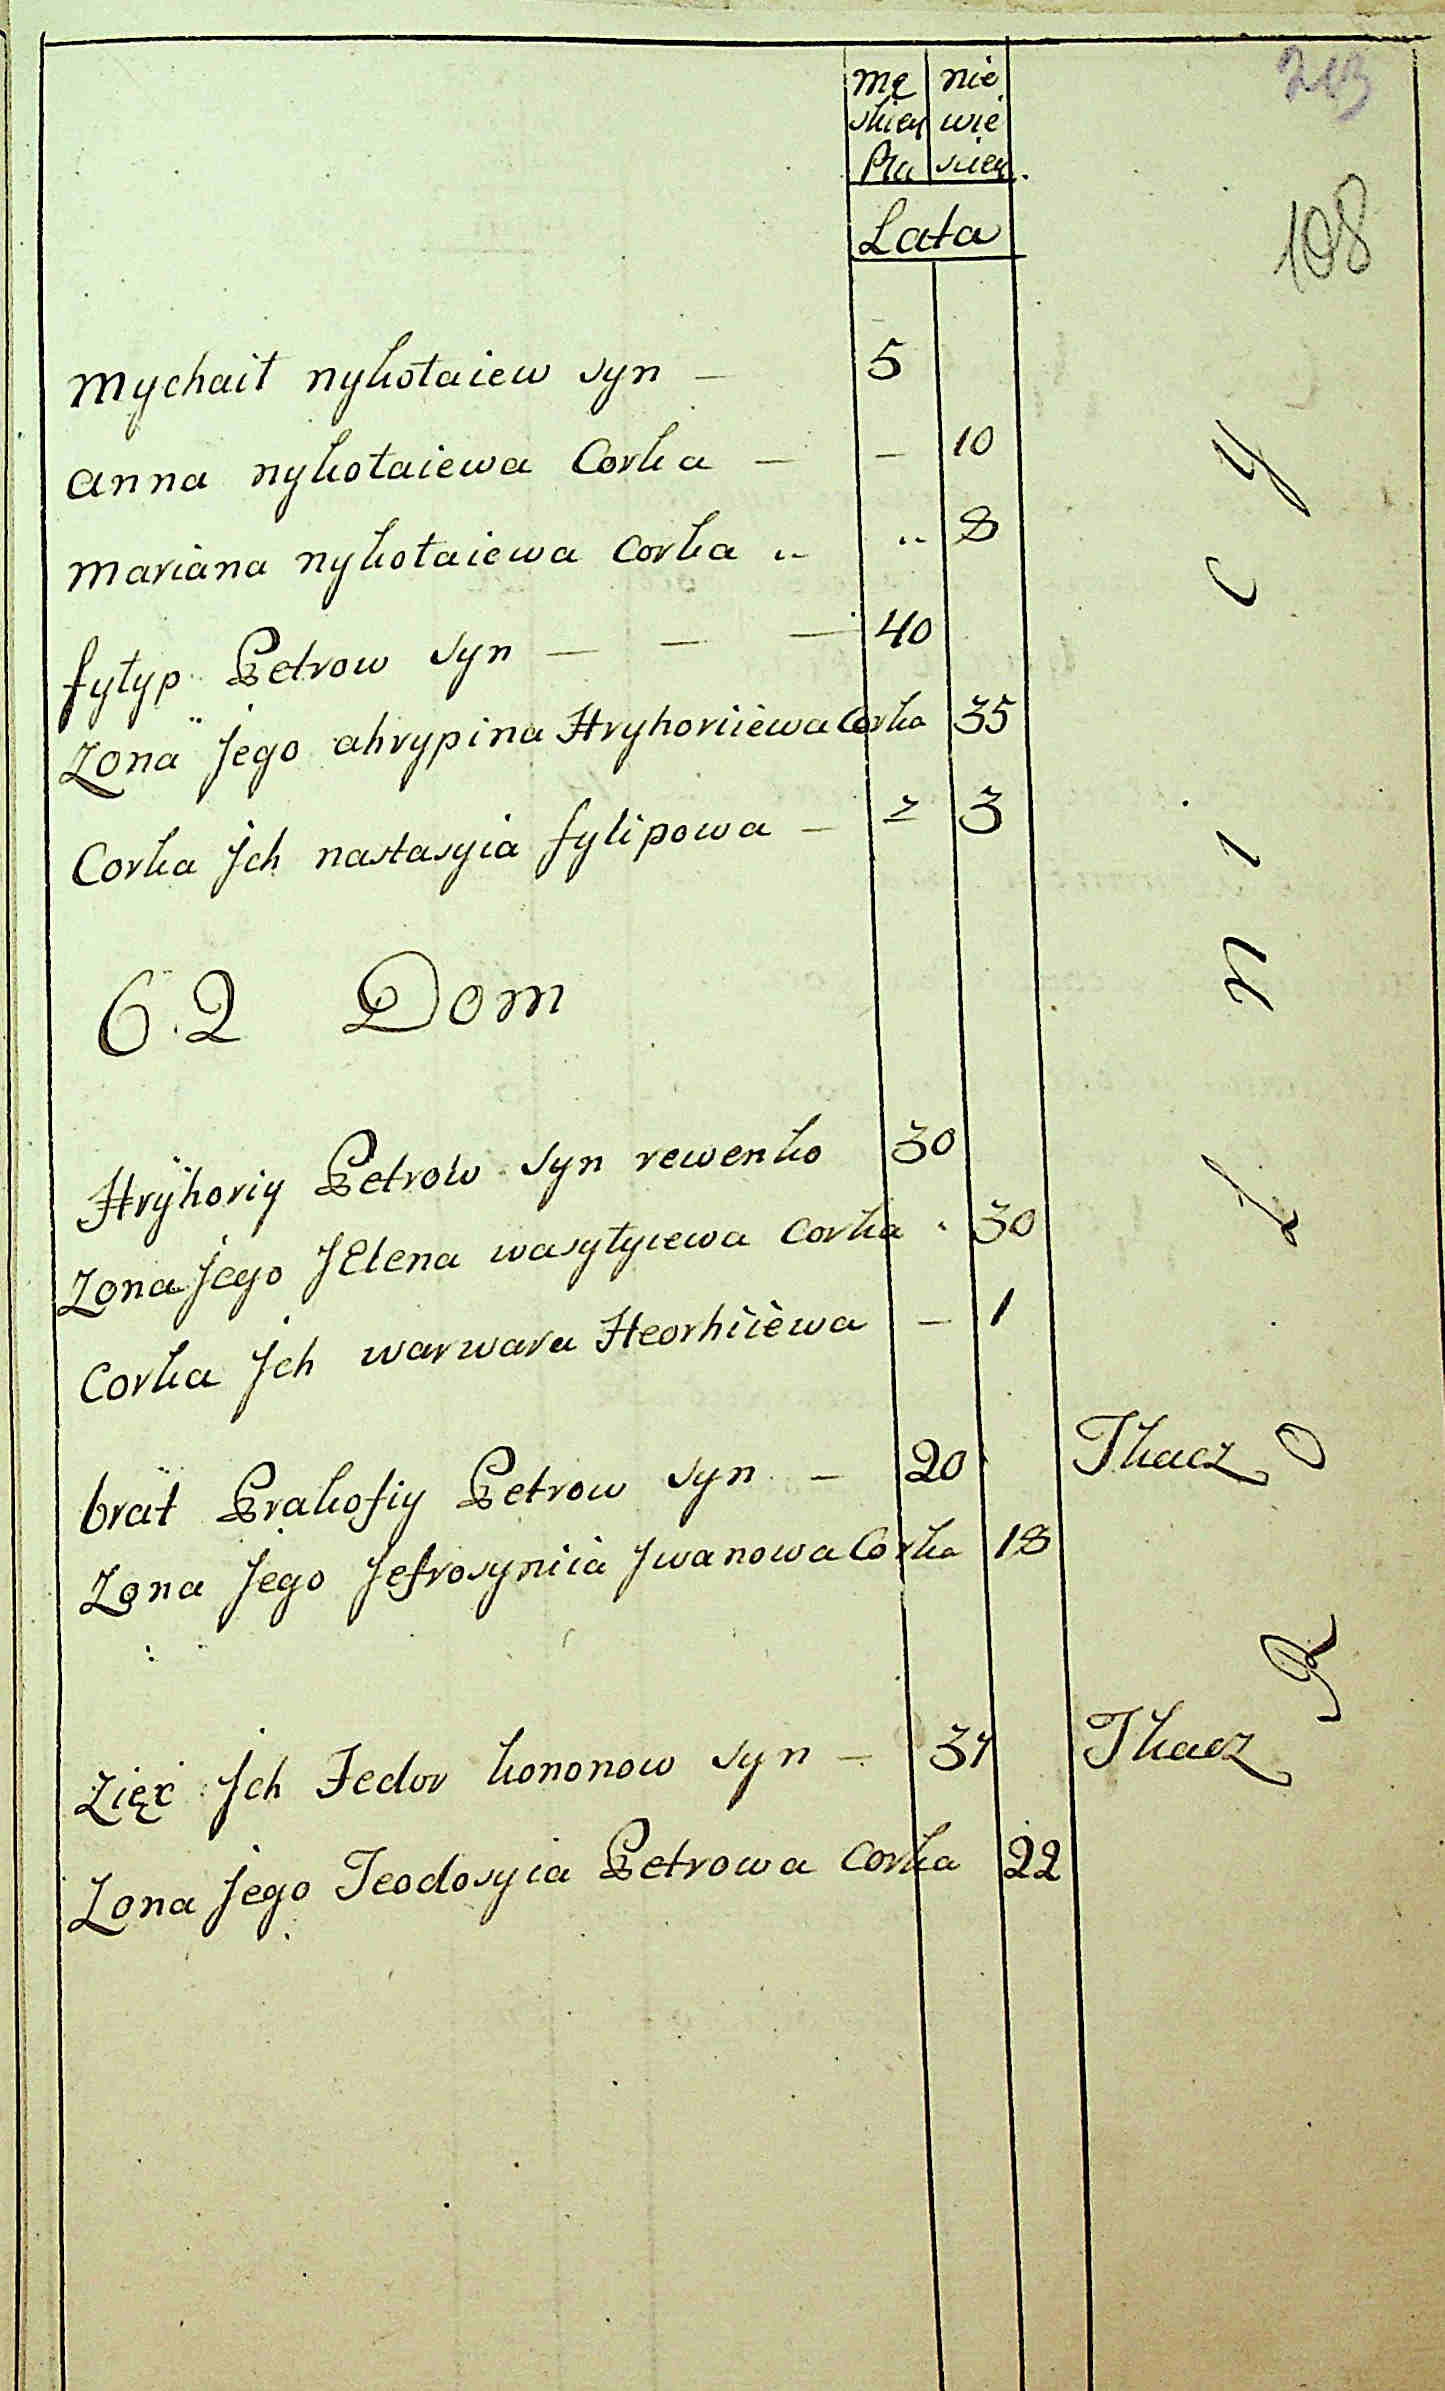 mę nie
skiey wie
Płci sciey.
Lata
213
108
Mychaił nykołaiew syn – 5
anna nykołaiewa Corka – – 10
Mariana nykołaiewa Corka „ „ 8
fyłyp Petrow syn – – – 40
Zona Jego ahrypina Hryhoriiewa Corka 35
Corka Jch nastasyia fylipowa – 3
62 Dom
Hryhoriy Petrow syn rewenko 30
Zona Jego JElena wasyłyiewa Corka 30
Corka Jch warwara Heorhiiewa – 1
brat Prakofiy Petrow syn – 20 Tkacz
Zona Jego Jefrosyniia Jwanowa Corka 18
Zięć Jch Fedor kononow syn – 37 Tkacz
Zona Jego Teodosyia Petrowa Corka 22
R o l n i c y